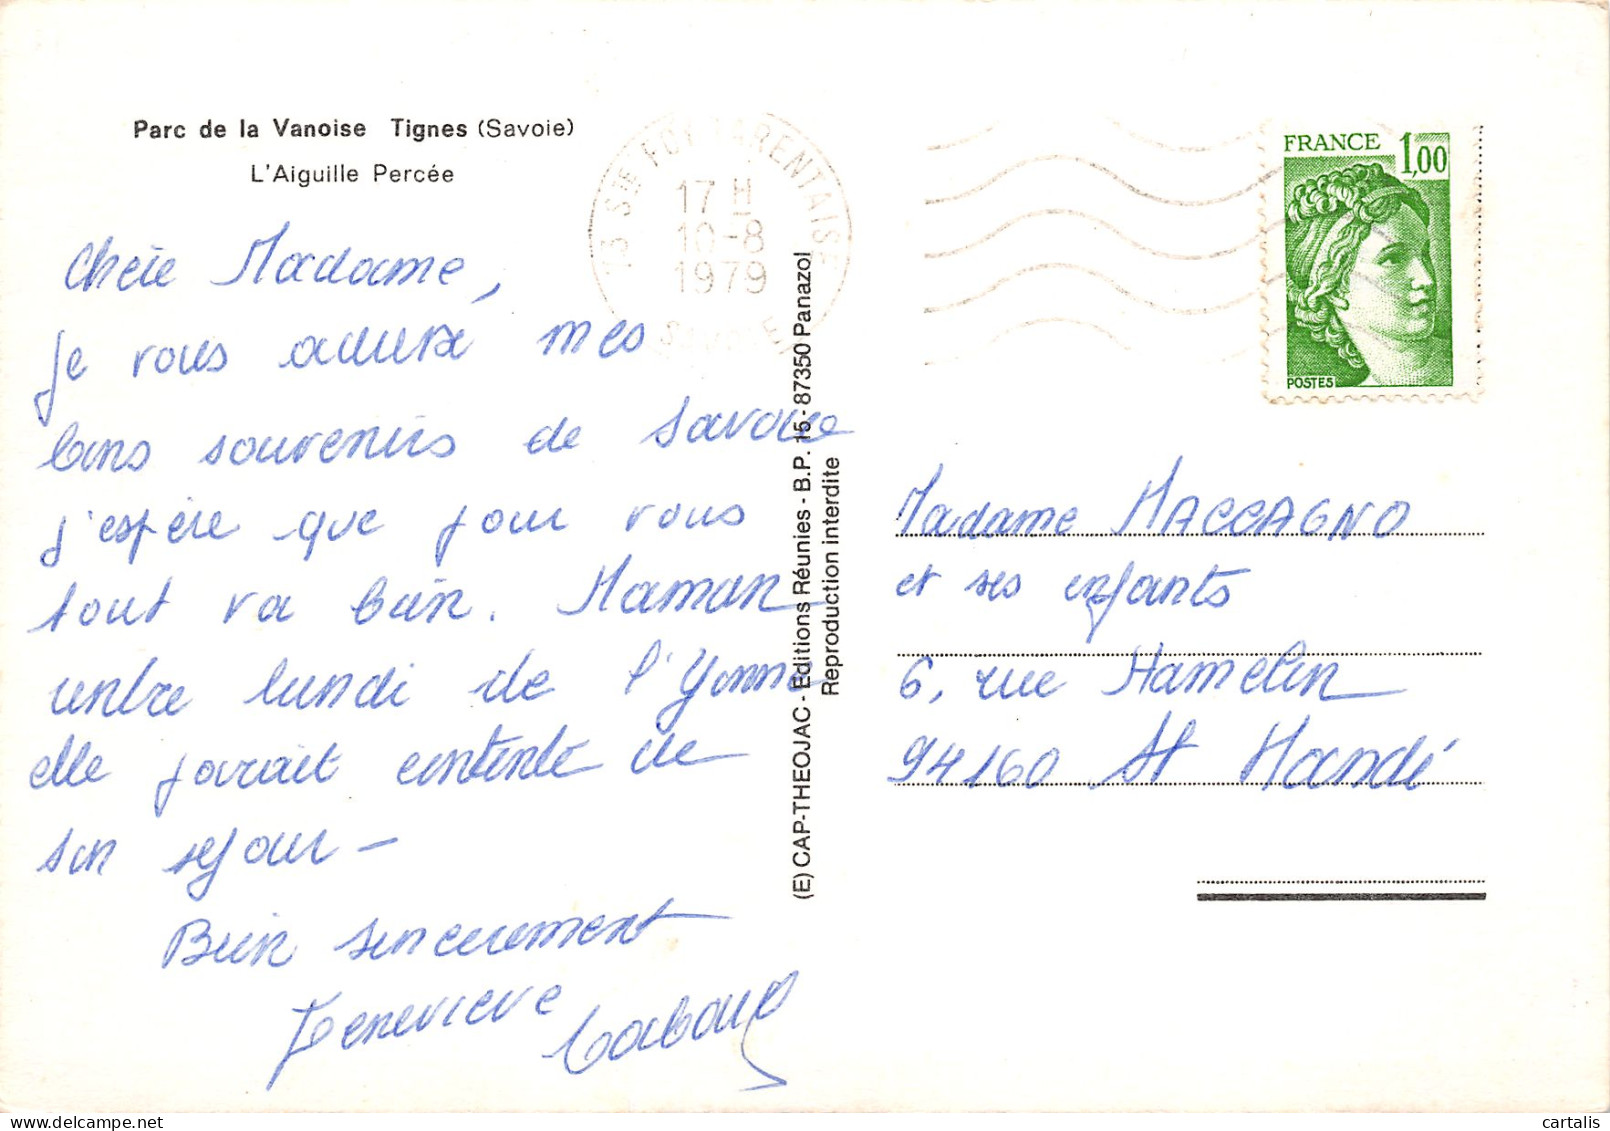 Parc de la Vanoise Tignes (Savoie)
L'Aiguille Percée
73 Ste FOY TARENTAISE
17 H
10-8
1979
SAVOIE
FRANCE 1,00
POSTES
Chère Madame,
je vous adresse mes
bons souvenirs de Savoie
j'espère que pour vous
tout va bien. Maman
rentre lundi de l'Yonne
elle paraît contente de
son séjour -
Bien sincèrement
Geneviève
(E) CAP-THEOJAC - Editions Réunies - B.P. 15 - 87350 Panazol
Reproduction interdite
Madame MACCAGNO
et ses enfants
6, rue Hamelin
94160 St Mandé
cartalis